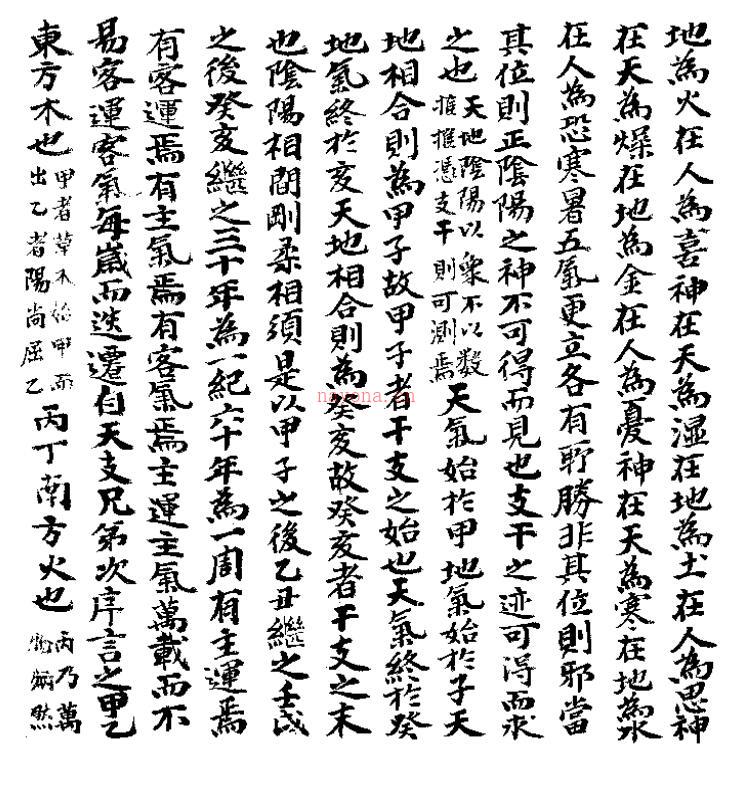 地為火在人為喜神在天為湿在地為土在人為思神
在天為燥在地為金在人為憂神在天為寒在地為水
在人為恐寒暑五氣更立各有所勝非其位則邪當
其位則正陰陽之神不可得而見也支干之迹可得而求
之也天地陰陽以象不以數推推憑支干則可測焉天氣始於甲地氣始於子天
地相合則為甲子故甲子者干支之始也天氣終於癸
地氣終於亥天地相合則為癸亥故癸亥者干支之末
也陰陽相間剛柔相須是以甲子之後乙丑繼之壬戌
之後癸亥繼之三十年為一紀六十年為一周有主運焉
有客運焉有主氣焉有客氣焉主運主氣萬載而不
易客運客氣每嵗而迭遷自天支兄第次序言之甲乙
東方木也甲者草木始甲而出乙者陽尚屈乙丙丁南方火也丙乃萬物炳然